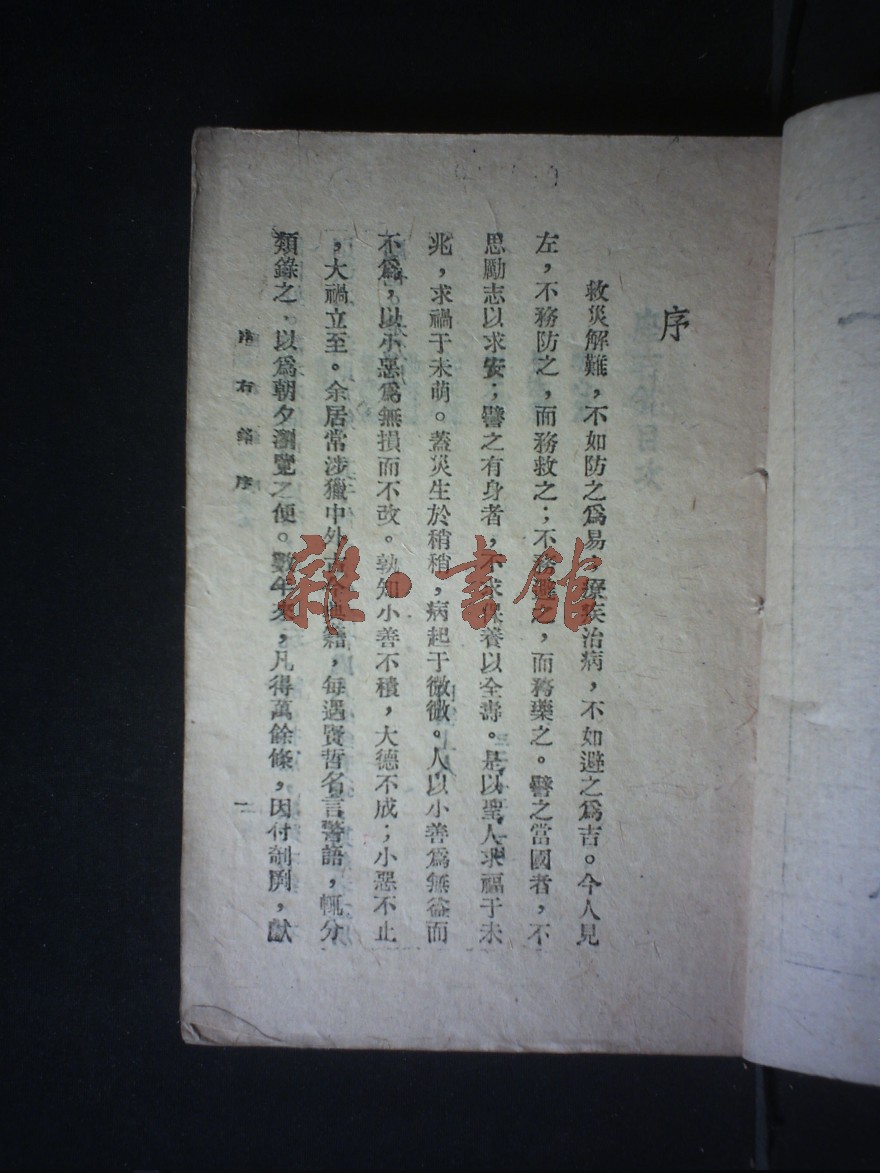 序
救災解難，不如防之爲易，療疾治病，不如避之爲吉。今人見
左，不務防之，而務救之；不務避之，而務藥之。譬之當國者，不
思勵志以求安；譬之有身者，不求保養以全壽。是以聖人求福于未
兆，求禍于未萌。蓋災生於稍稍，病起于微微。人以小善爲無益而
不爲，以小惡爲無損而不改。孰知小善不積，大德不成；小惡不止
，大禍立至。余居常涉獵中外古今典籍，每遇賢哲名言警語，輒分
類錄之，以爲朝夕瀏覽之便。數年來，凡得萬餘條，因付剞劂，獻
座右銘序
一
雜·書館